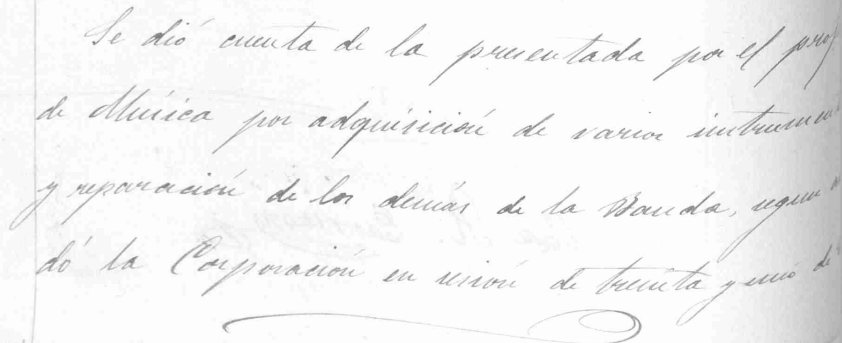 Se dió cuenta de la presentada por el prof
de Música por adquisición de varios instrumen
y reparación de los demás de la Banda, segun
dó la Corporación en sesión de treinta y uno de